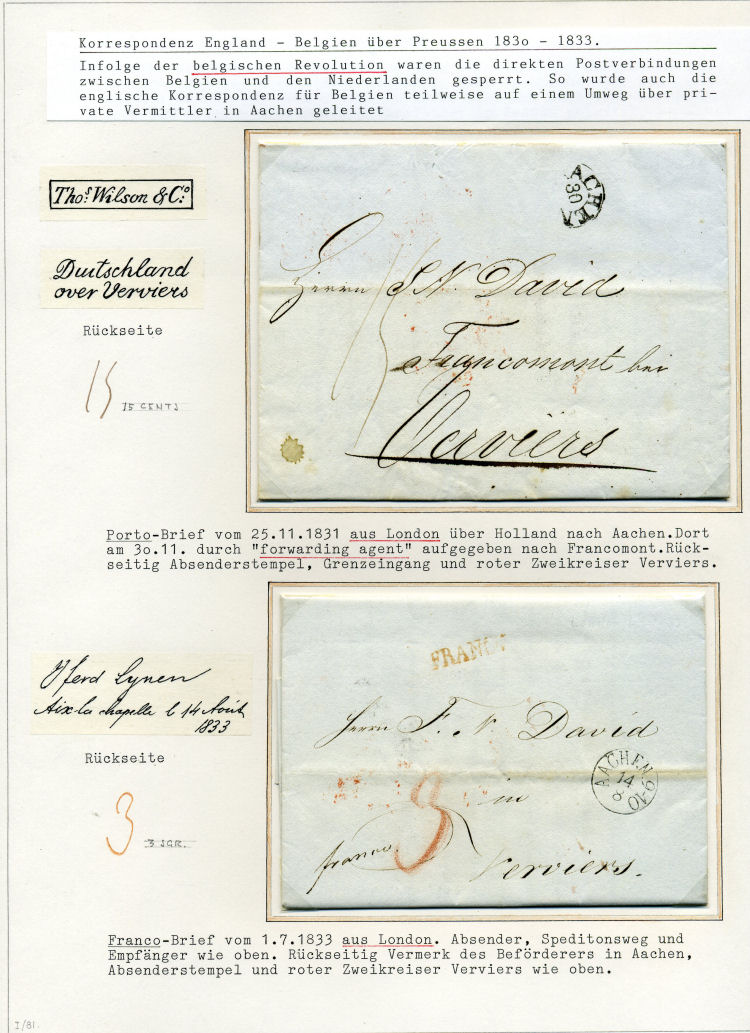 Korrespondenz England - Belgien über Preussen 183o - 1833.
Infolge der belgischen Revolution waren die direkten Postverbindungen
zwischen Belgien und den Niederlanden gesperrt. So wurde auch die
englische Korrespondenz für Belgien teilweise auf einem Umweg über pri-
vate Vermittler in Aachen geleitet
Thos. Wilson & Co.
Duitschland
over Verviers
Rückseite
15
15 CENTS
AACHEN
30
Herrn J. N. David
15
Francomont bei
Verviers
Porto-Brief vom 25.11.1831 aus London über Holland nach Aachen.Dort
am 3o.11. durch "forwarding agent" aufgegeben nach Francomont.Rück-
seitig Absenderstempel, Grenzeingang und roter Zweikreiser Verviers.
ferd Lynen
Aix la chapelle l 14 Août
1833
Rückseite
3
3 SGR.
FRANCO
Herrn F. N. David
AACHEN 9-10
14
8
in
3
franco
Verviers.
Franco-Brief vom 1.7.1833 aus London. Absender, Speditonsweg und
Empfänger wie oben. Rückseitig Vermerk des Beförderers in Aachen,
Absenderstempel und roter Zweikreiser Verviers wie oben.
I/81.